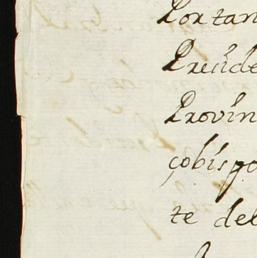 Por tan
Preside
Provin
çobispo
te del